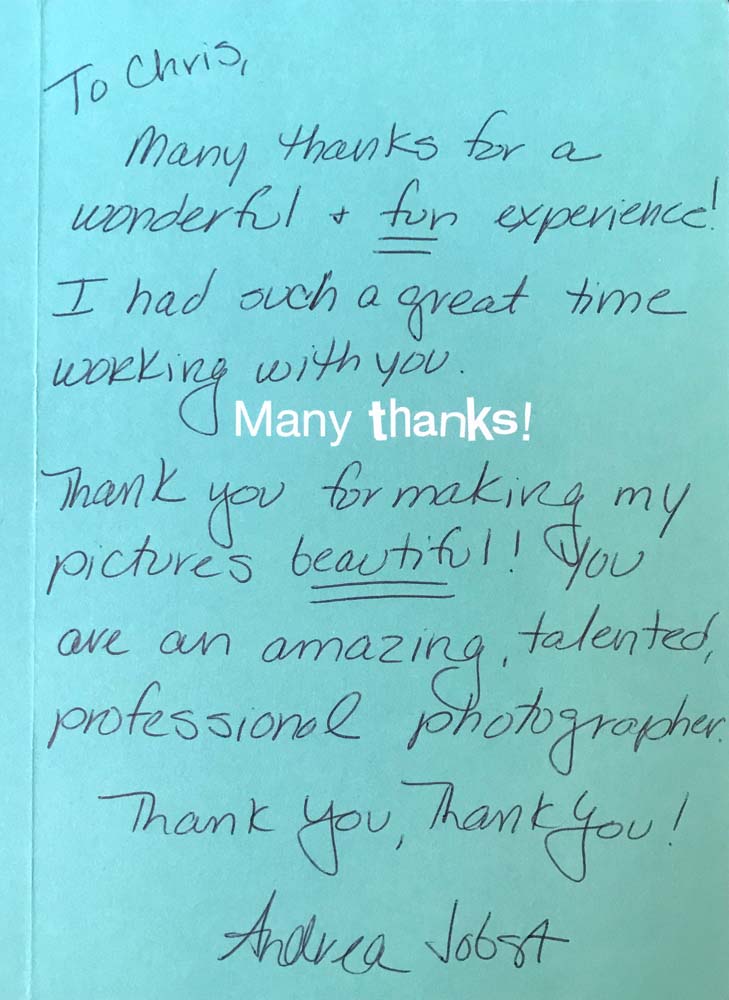 To Chris,
Many thanks for a
wonderful + fun experience!
I had such a great time
working with you.
Many thanks!
Thank you for making my
pictures beautiful! You
are an amazing, talented,
professional photographer.
Thank you, Thank you!
Andrea Jobst